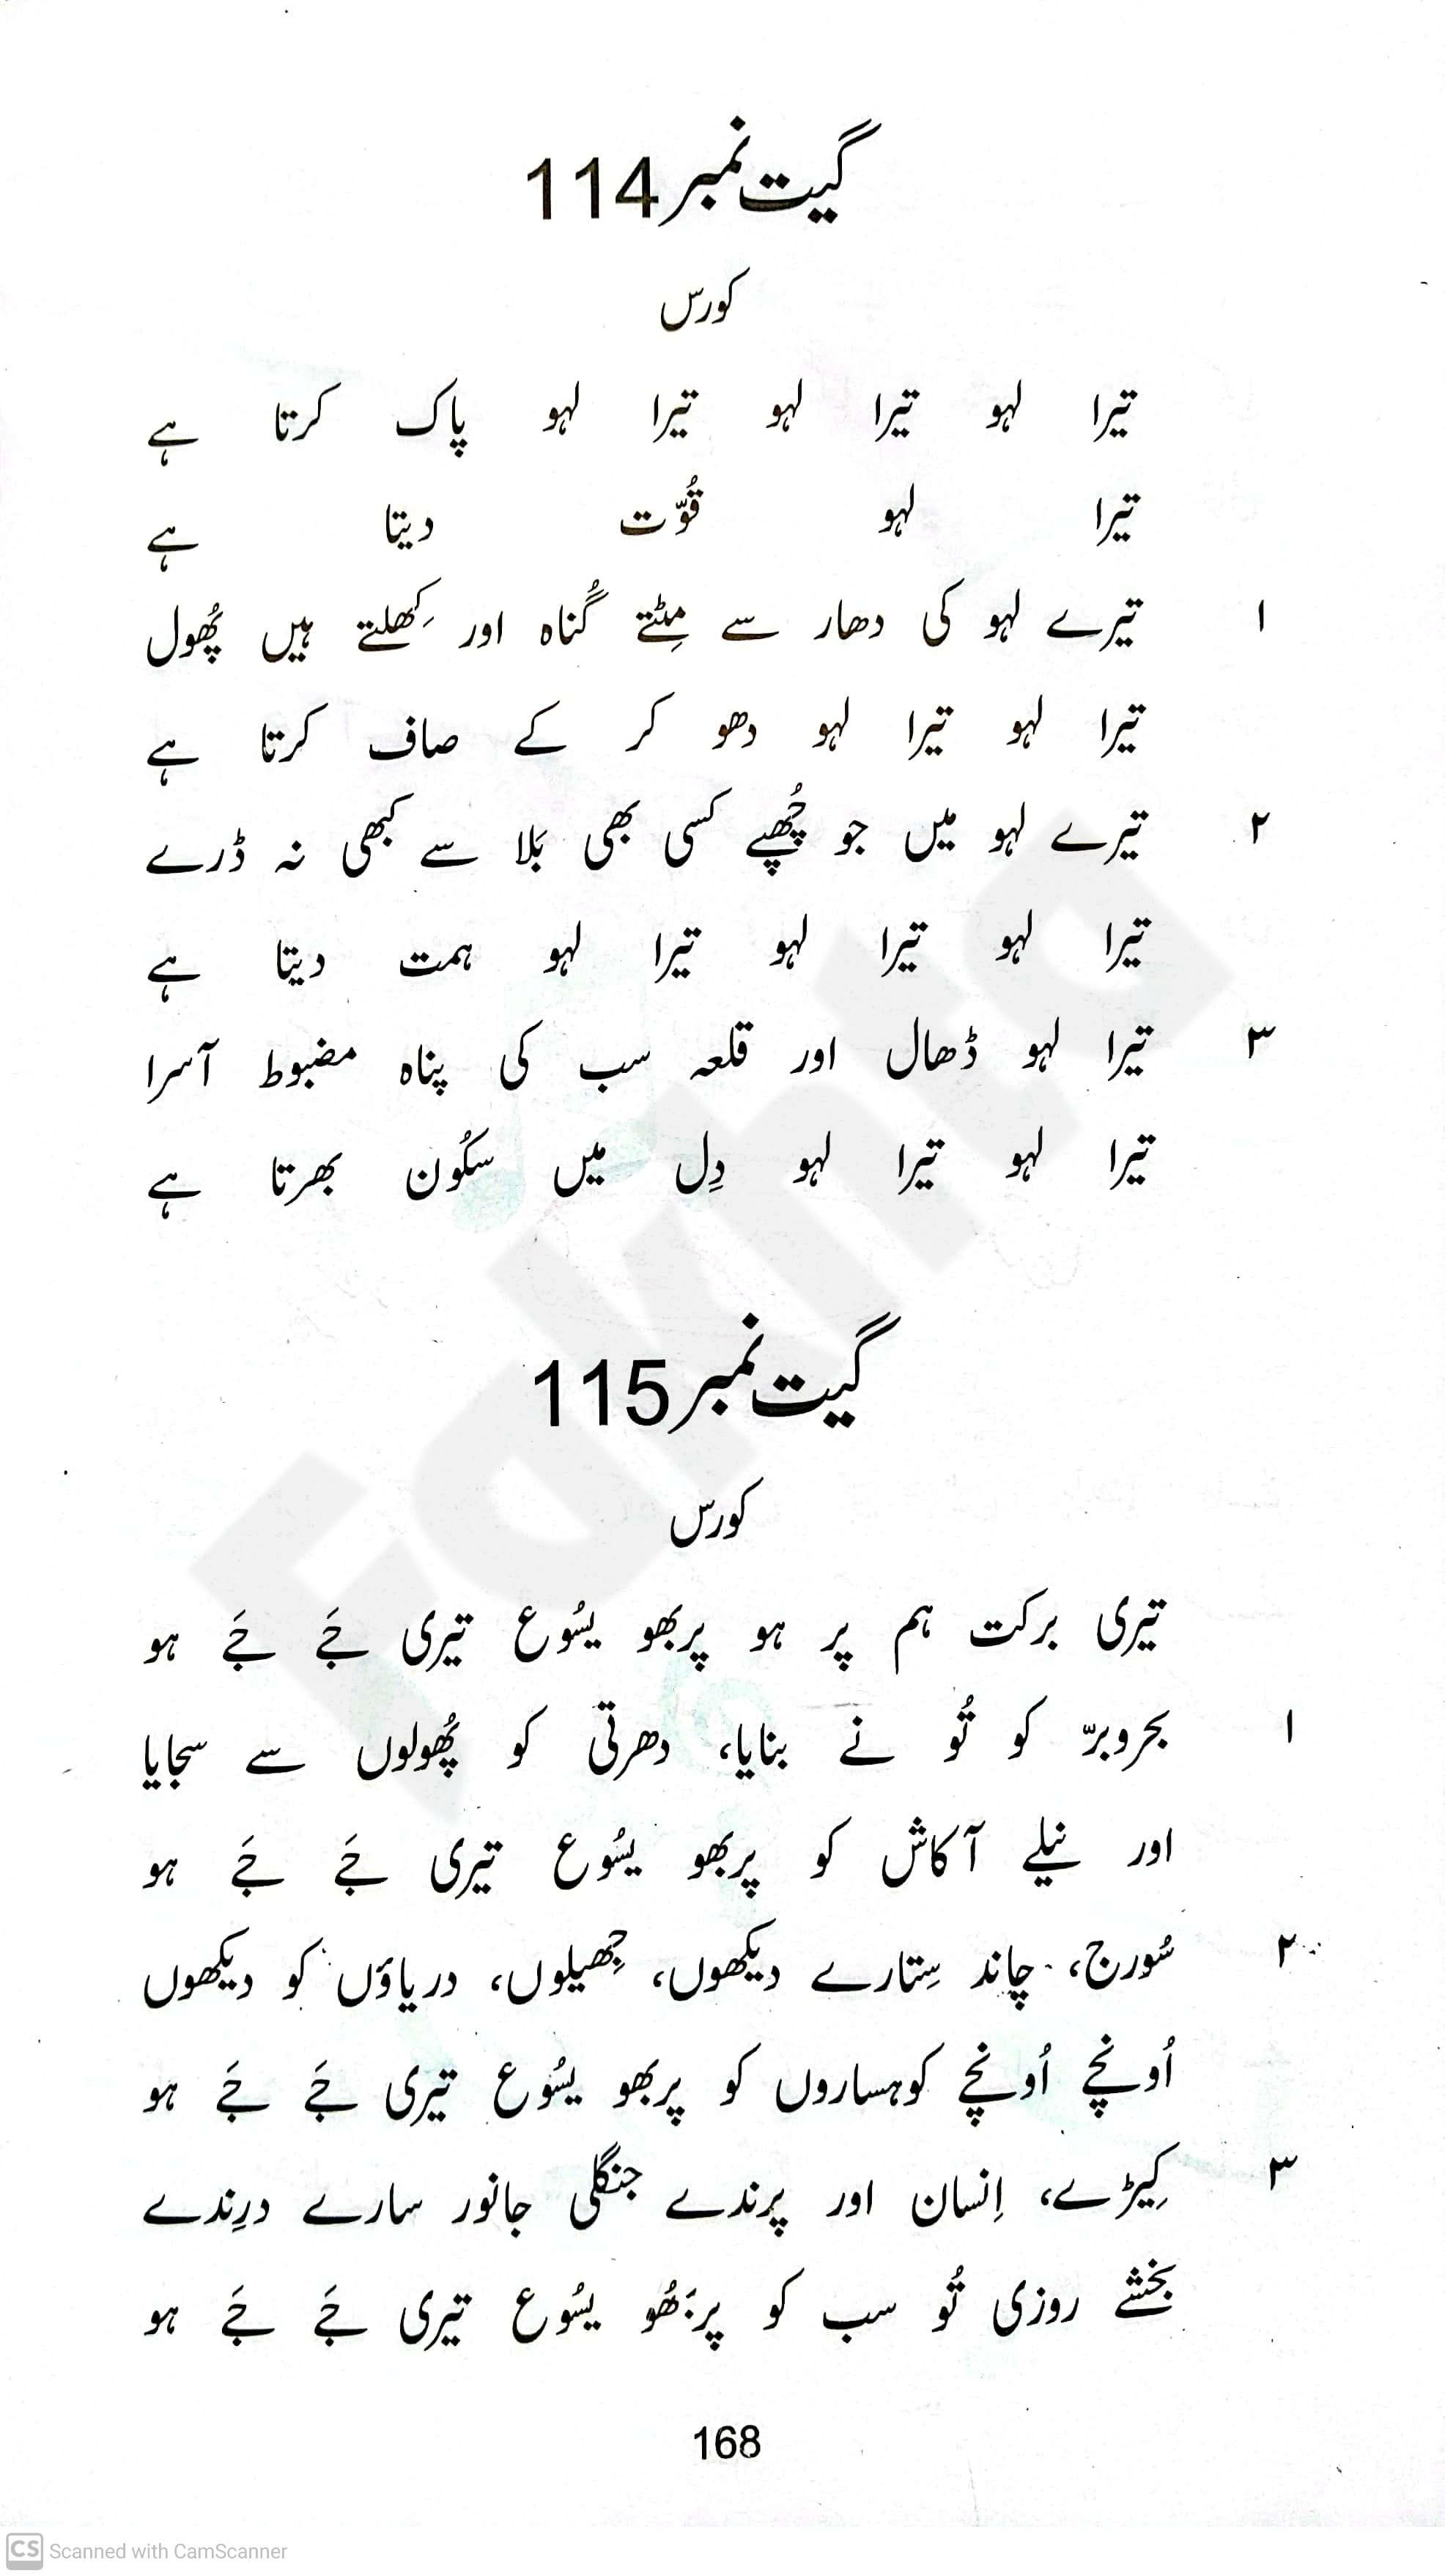 گیت نمبر 114
کورس
تیرا لہو تیرا لہو تیرا لہو پاک کرتا ہے
تیرا لہو قُوّت دیتا ہے
۱ تیرے لہو کی دھار سے مِٹتے گُناہ اور کِھلتے ہیں پُھول
تیرا لہو تیرا لہو دھو کر کے صاف کرتا ہے
۲ تیرے لہو میں جو چُھپے کسی بھی بَلا سے کبھی نہ ڈرے
تیرا لہو تیرا لہو تیرا لہو ہمت دیتا ہے
۳ تیرا لہو ڈھال اور قلعہ سب کی پناہ مضبوط آسرا
تیرا لہو تیرا لہو دِل میں سکُون بھرتا ہے
گیت نمبر 115
کورس
تیری برکت ہم پر ہو پربھو یسُوع تیری جَے جَے ہو
۱ بحروبرّ کو تُو نے بنایا، دھرتی کو پُھولوں سے سجایا
اور نیلے آکاش کو پربھو یسُوع تیری جَے جَے ہو
۲ سُورج، چاند سِتارے دیکھوں، جِھیلوں، دریاؤں کو دیکھوں
اُونچے اُونچے کوہساروں کو پربھو یسُوع تیری جَے جَے ہو
۳ کِیڑے، اِنسان اور پرندے جنگلی جانور سارے درِندے
بخشے روزی تُو سب کو پربَھُو یسُوع تیری جَے جَے ہو
168
Fakhta
CS Scanned with CamScanner